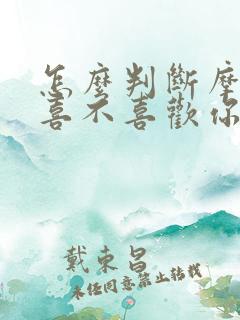 怎麼判斷摩
喜不喜歡你
戴東昌
未经同意禁止转载